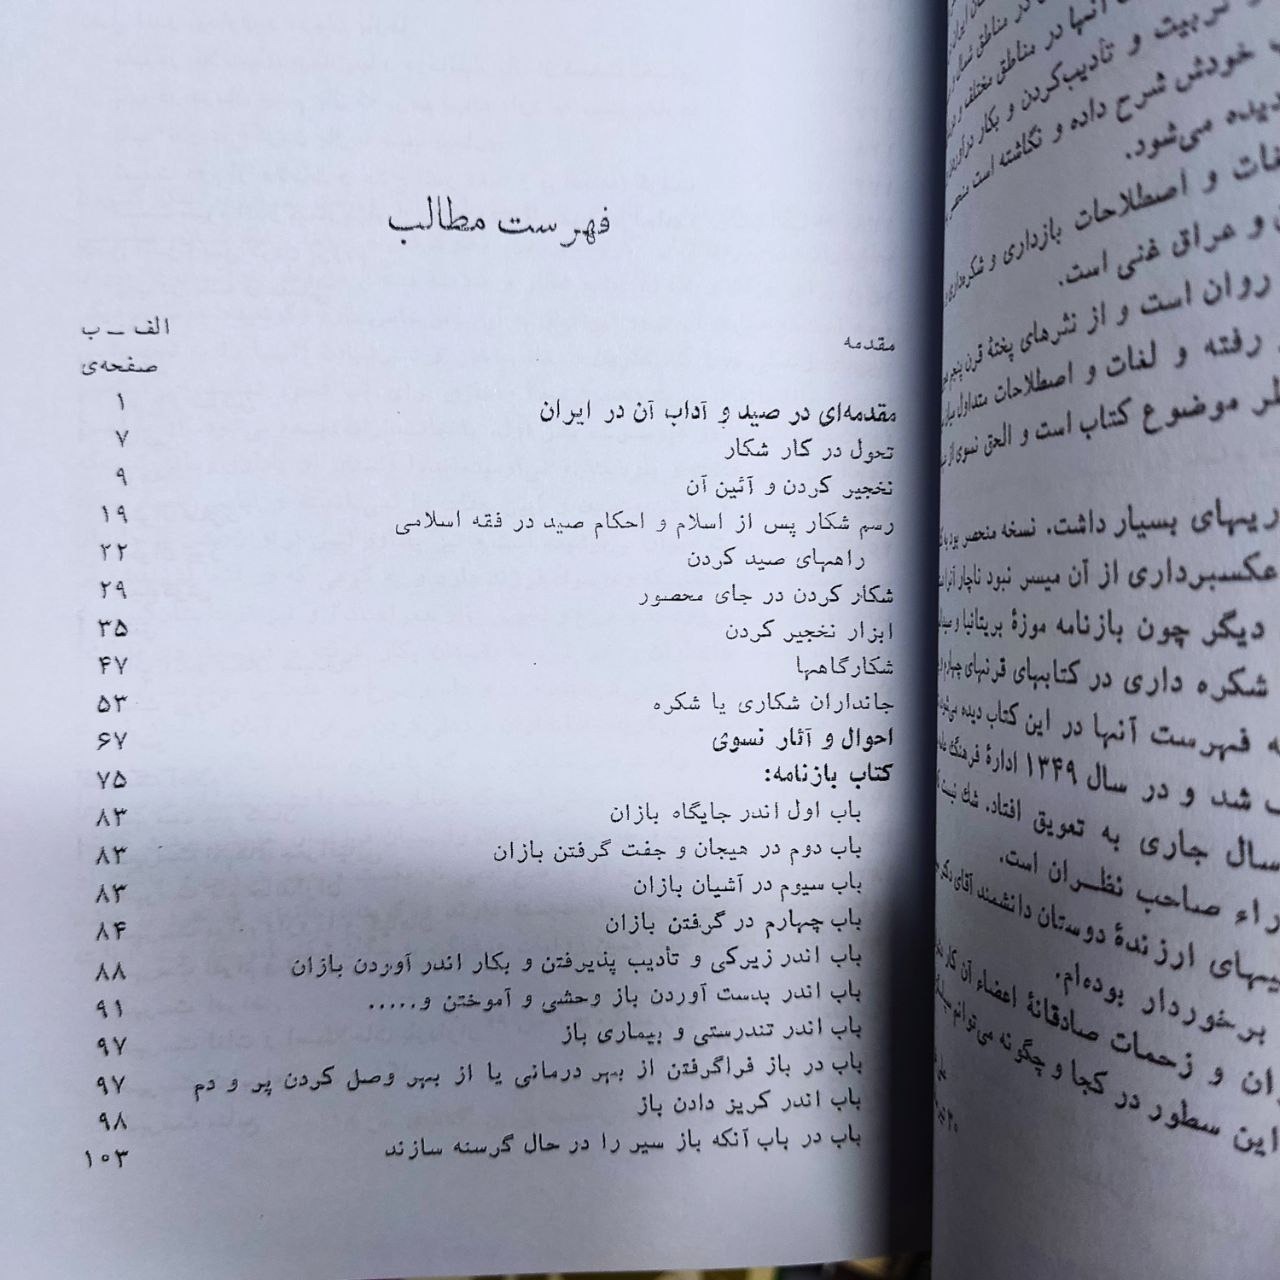 فهرست مطالب
مقدمه الف ــ ب
صفحه‌ی
مقدمه‌ای در صید و آداب آن در ایران ۱
تحول در کار شکار ۷
نخجیر کردن و آئین آن ۹
رسم شکار پس از اسلام و احکام صید در فقه اسلامی ۱۹
راههای صید کردن ۲۲
شکار کردن در جای محصور ۲۹
ابزار نخجیر کردن ۳۵
شکارگاهها ۴۷
جانداران شکاری یا شکره ۵۳
احوال و آثار نسوی ۶۷
کتاب بازنامه: ۷۵
باب اول اندر جایگاه بازان ۸۳
باب دوم در هیجان و جفت گرفتن بازان ۸۳
باب سیوم در آشیان بازان ۸۳
باب چهارم در گرفتن بازان ۸۴
باب اندر زیرکی و تأدیب پذیرفتن و بکار اندر آوردن بازان ۸۸
باب اندر بدست آوردن باز وحشی و آموختن و..... ۹۱
باب اندر تندرستی و بیماری باز ۹۷
باب در باز فراگرفتن از بهر درمانی یا از بهر وصل کردن پر و دم ۹۷
باب اندر کریز دادن باز ۹۸
باب در باب آنکه باز سیر را در حال گرسنه سازند ۱۰۳
آنها در مناطق مختلف و
تربیت و تأدیب‌کردن و بکار
خودش شرح داده و نگاشته است
دیده می‌شود.
و اصطلاحات بازداری و شکره‌داری
و عراق غنی است.
روان است و از نثرهای پختهٔ قرن پنجم
رفته و لغات و اصطلاحات متداول
موضوع کتاب است و الحق نسوی از
بسیار داشت. نسخه منحصر بود
عکسبرداری از آن میسر نبود ناچار
دیگر چون بازنامه موزهٔ بریتانیا و
شکره داری در کتابهای قرنهای چهارم
فهرست آنها در این کتاب دیده می‌شود
شد و در سال ۱۳۴۹ ادارهٔ فرهنگ
سال جاری به تعویق افتاد. شك نیست
صاحب نظران است.
ارزندهٔ دوستان دانشمند آقای دکتر
برخوردار بوده‌ام.
و زحمات صادقانهٔ اعضاء آن
این سطور در کجا و چگونه می‌توانم